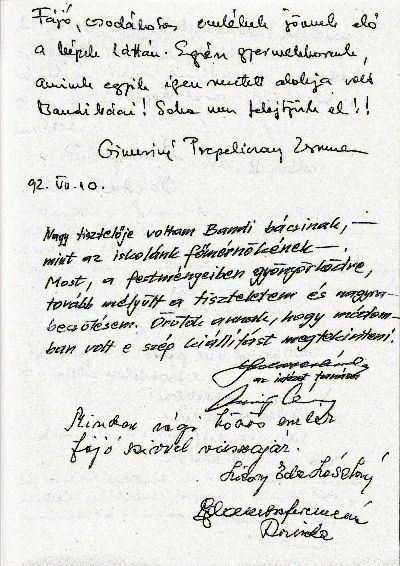 Fájó, csodálatos emlékek jönnek elő
a képek láttán. Egész gyermekkorunk,
aminek egyik igen tisztelt alakja volt
Bandi bácsi! Soha nem felejtjük el!!
92. VII. 10.
Nagy tisztelője voltam Bandi bácsinak, —
mint az iskolánk főmérnökének —.
Most, a festményeiben gyönyörködve,
tovább mélyült a tiszteletem és nagyra-
becsülésem. Örülök annak, hogy módom-
ban volt e szép kiállítást megtekinteni!
az intézet
Minden régi közös emlék
fájó szívvel visszajár.